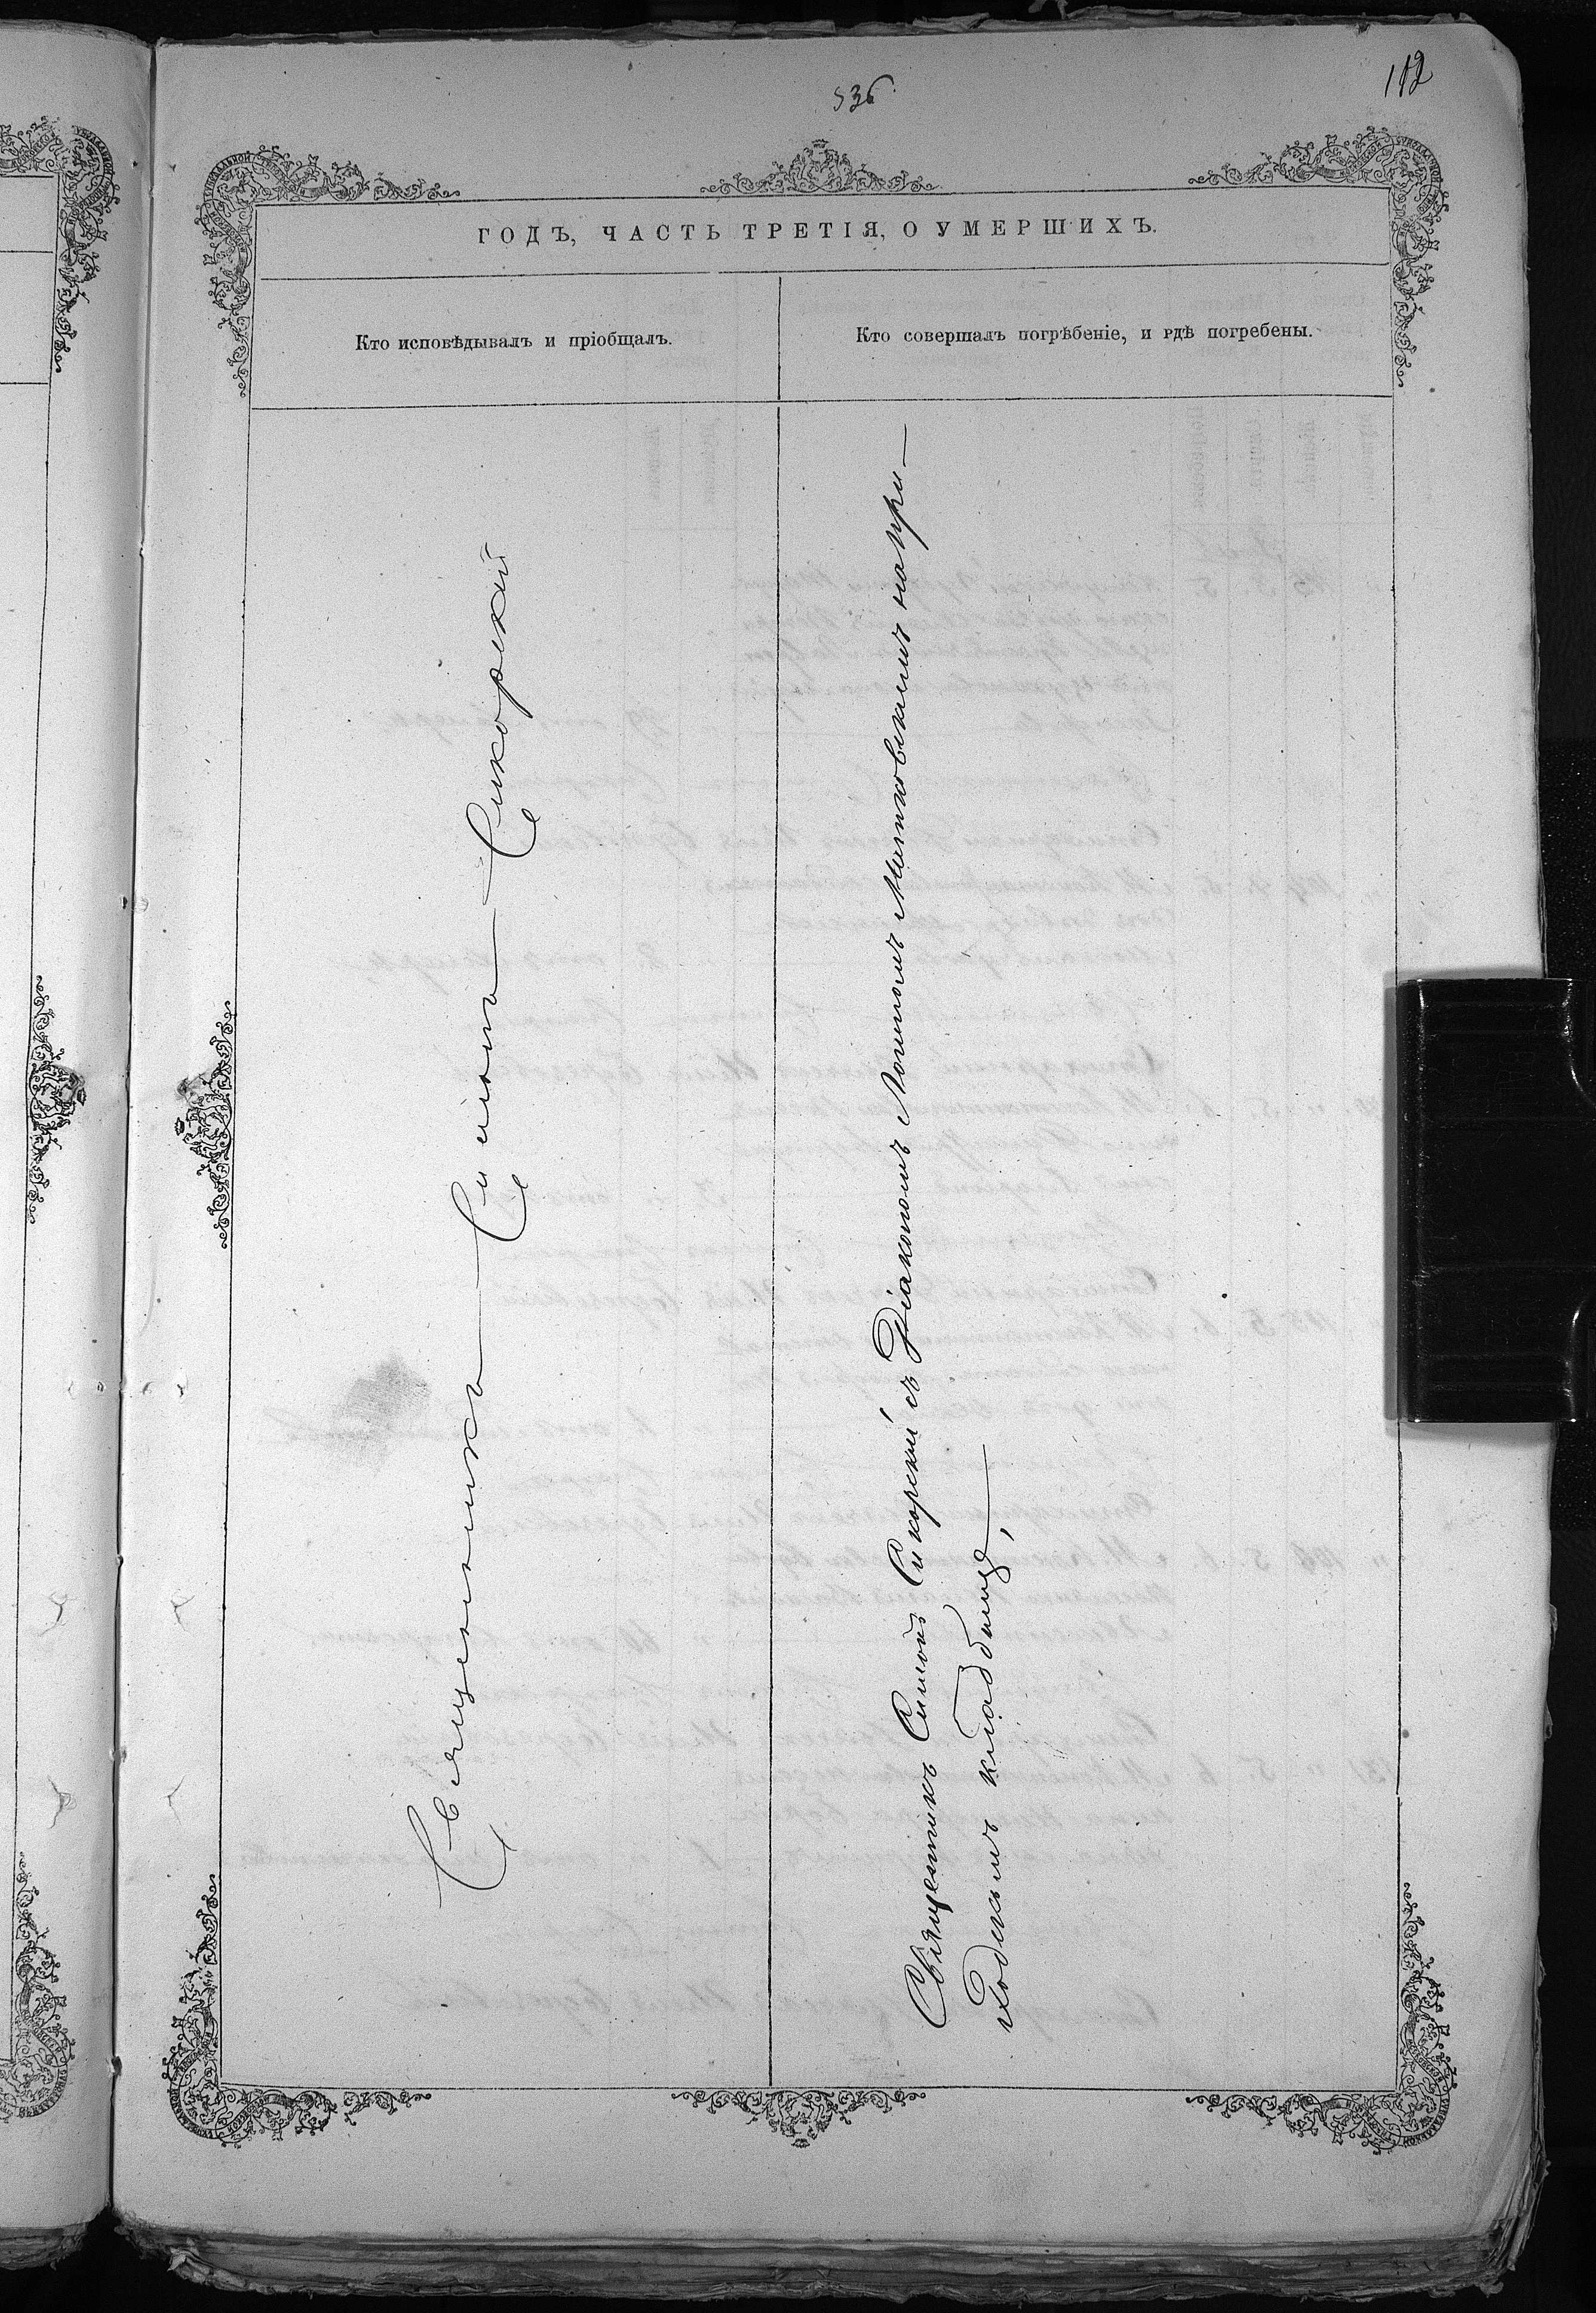 536
112
ГОДЪ, ЧАСТЬ ТРЕТІЯ, О УМЕРШИХЪ.
Кто исповѣдывалъ и пріобщалъ.
Кто совершалъ погрѣбеніе, и гдѣ погребены.
Священникъ Симонъ Сикорскій
Священникъ Симонъ Сикорскій съ Діакономъ Маньковскимъ на при-
ходскомъ кладбищѣ